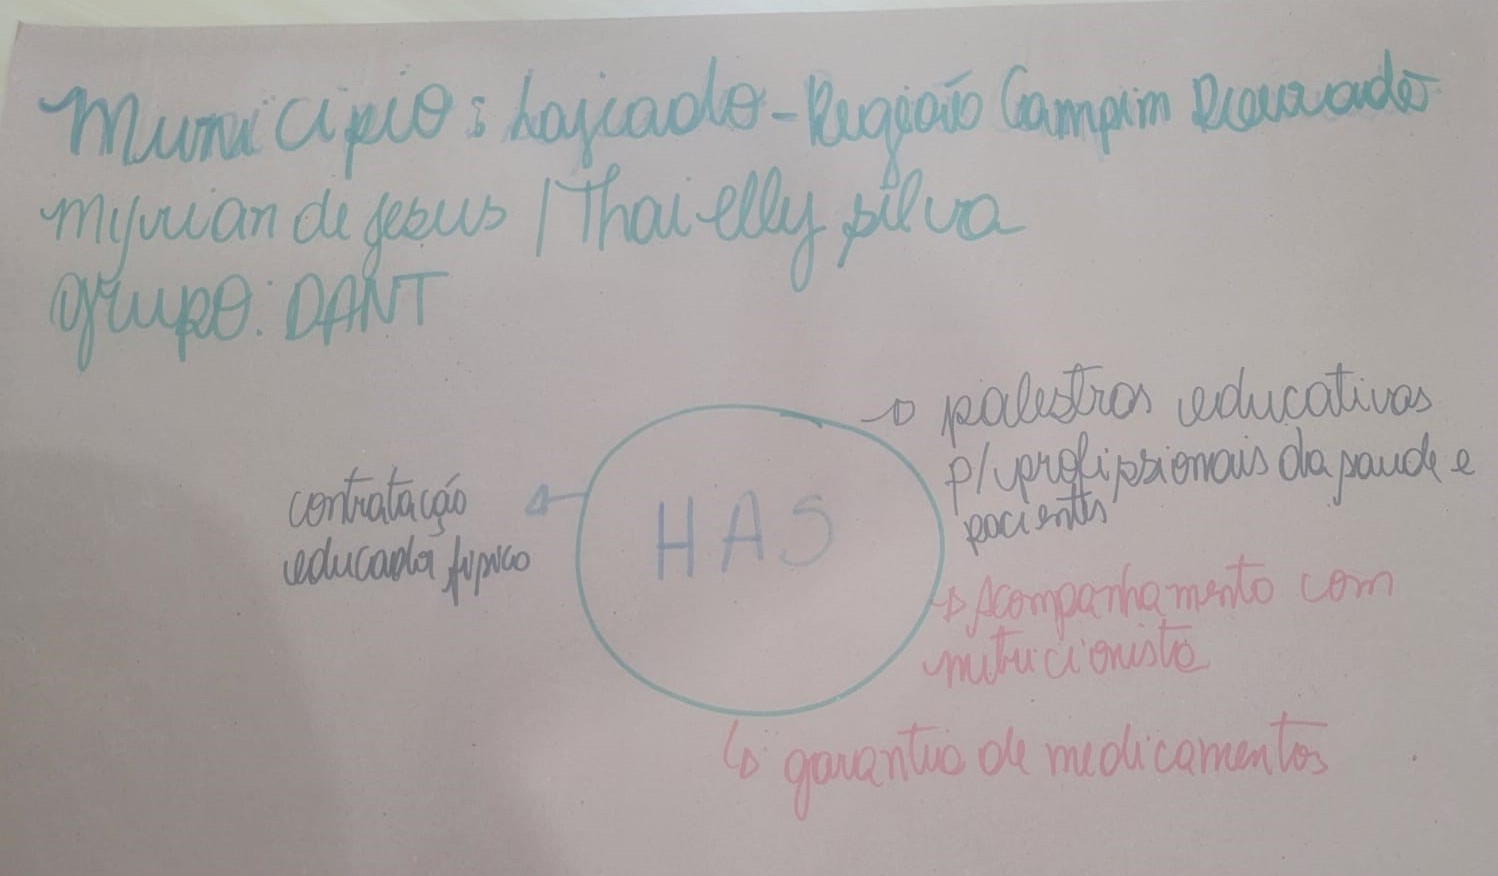 Município: Lajeado - Região Campim Dourado
Myrian de Jesus / Thaielly Silva
Grupo: DANT
palestras educativas
p/ profissionais da saude e
pacientes
contratação
educador físico
HAS
Acompanhamento com
nutricionista
garantia de medicamentos